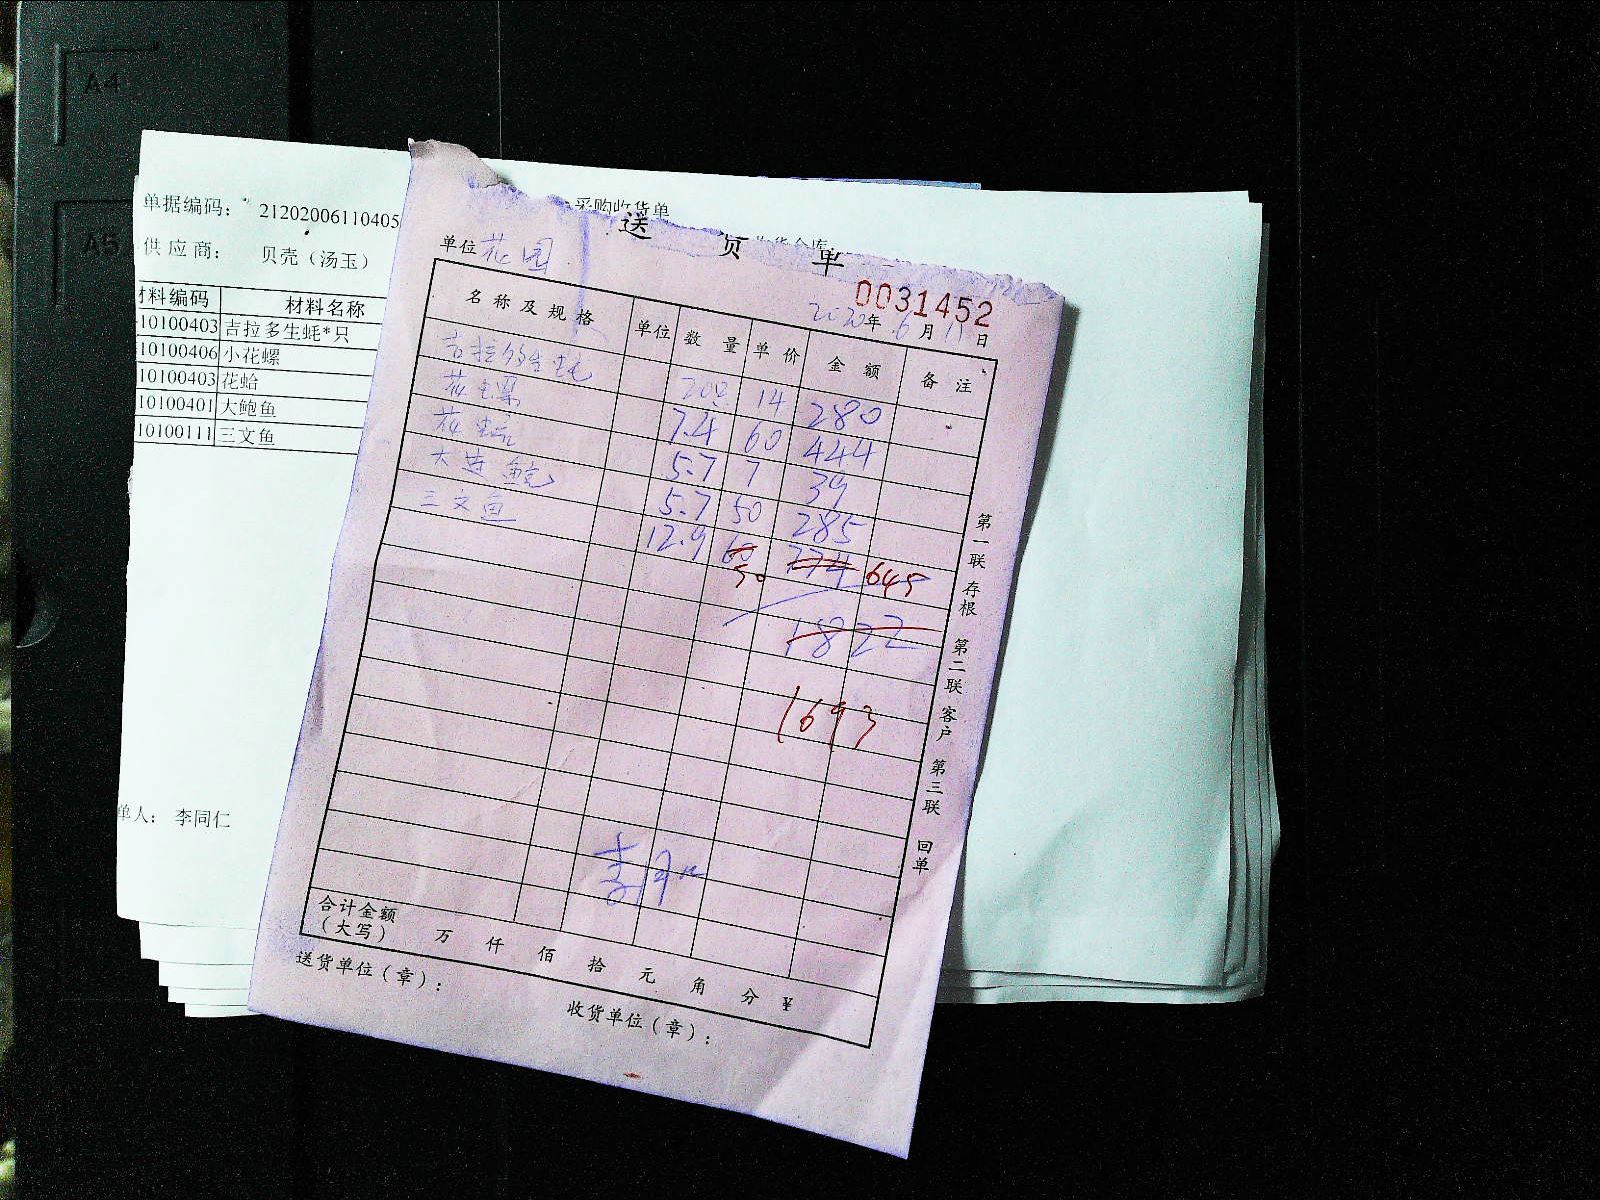 A4
A5
采购收货单
单据编码： 21202006110405
供应商： 贝壳（汤玉）
材料编码 材料名称
10100403 吉拉多生蚝*只
10100406 小花螺
10100403 花蛤
10100401 大鲍鱼
10100111 三文鱼
单人： 李同仁
送货单
单位 花园
0031452
2020年 6月 11日
名称及规格 单位 数量 单价 金额 备注
吉拉多生蚝 20只 14 280
花螺 7.4 60 444
花蛤 5.7 7 39
大连鲍 5.7 50 285
三文鱼 12.9 60 774
50 645
1822
1693
合计金额
（大写） 万 仟 佰 拾 元 角 分 ¥
送货单位（章）：
收货单位（章）：
第一联 存根 第二联 客户 第三联 回单